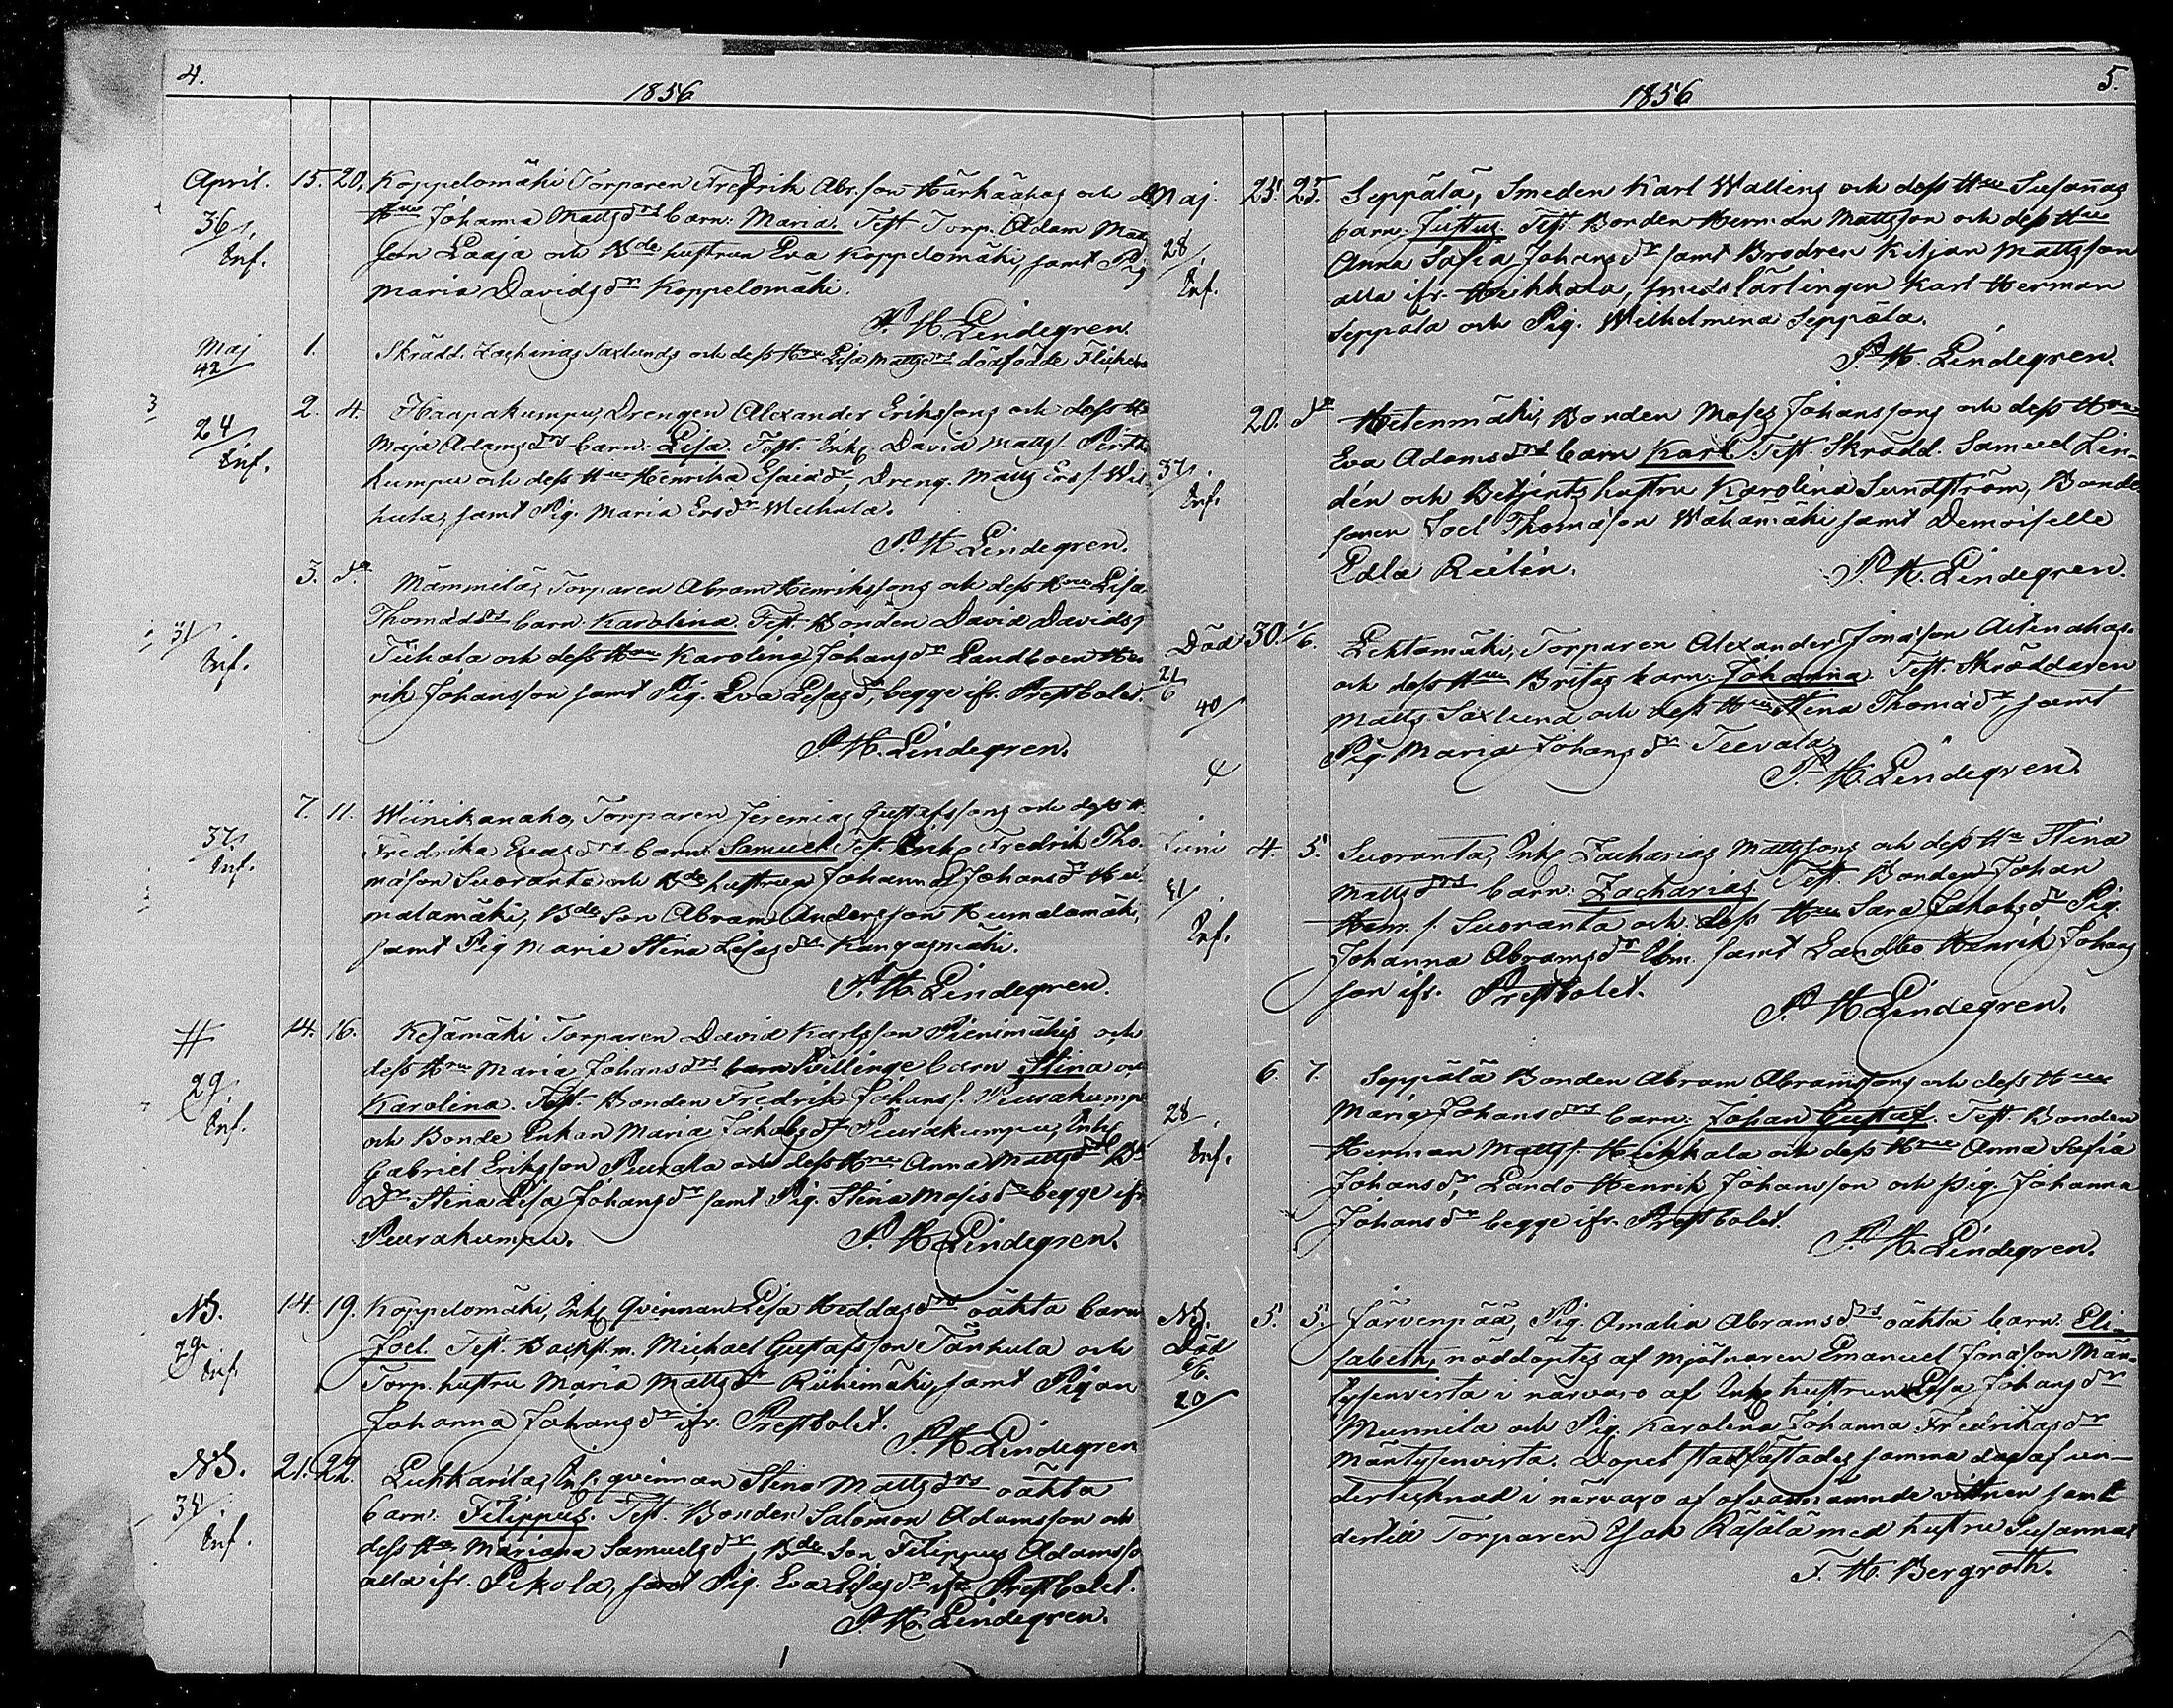 4.
1856
April. 15. 20. Koppelomäki Torparen Fredrik Abr.son Härkäahos och dess
36/. Hru Johanna Mattsdrs barn: Maria. Test Torp. Adam Matts
Inf. son Laaja och Bde hustrun Eva Koppelomäki, samt Pig
Maria Davidsdr Koppelomäki.
P. H. Lindegren.
Maj 1. Skrädd. Zacharias Saxlunds och dess Hru Lisa Mattsdrs dödfödde Flicka
42
2. 4. Haapakumpu, Drengen Alexander Erikssons och dess H
24/ Maja Adamsdrs barn: Lisa. Test. Inh. David Matts/.
Inf. kumpu och dess Hru Henrika Esaiædr, Dreng. Matts Ers/.
samt Pig. Maria Ersdr
P. H. Lindegren.
3. do Mämmilä, Torparen Abram Henrikssons och dess Hru Lisa
Thomædrs barn: Karolina. Test. Bonden David Davids/
31/ Tiihala och dess Hru Karolina Johansdr Landboen Hen
Inf. rik Johansson samt Pig. Eva Lisasdr, begge ifr. Prestbolet.
P. H. Lindegren.
7. 11. Wiinikanaho, Torparen Jeremias Gustafssons och dess H.
37/. Fredrika Evasdrs barn: Samuel Test. Inh. Fredrik Tho-
Inf. mæson Suoranta och Bde hustrun Johanna Johansdr Hu
malamäki, Bde Son Abram Andersson Humalamäki,
samt Pig Maria Stina Lisasdr Kangasmäki.
P. H. Lindegren.
# 14. 16. Kesämäki Torparen David Karlsson Pienimäkis och
29/ dess Hru Maria Johansdrs barn Tvillinge barn Stina och
Inf. Karolina. Test. Bonden Fredrik Johans/. Peurakumpu
och Bonde Enkan Maria Jakobsdr Peurakumpu, Inh.
Gabriel Eriksson Peurala och dess Hru Anna Mattsdr Bde
Dr Stina Lisa Johansdr samt Pig. Stina Mosisdr begge ifr
Peurakumpu. P. H. Lindegren.
NB. 14. 19. Koppelomäki, Inh. Qvinnan Lisa Heddasdrs oäkta barn
29/ Joel. Test. Backst.m. Michael Gustafsson Tarhula och
Inf. Torp. hustru Maria Mattsdr Riihimäki, samt Pigan
Johanna Johansdr ifr. Prestbolet.
P. H. Lindegren
NB. 21. 22. Luhkarila, Inh. qvinnan Stina Mattsdrs oäkta
34/. barn: Filippus. Test. Bonden Salomon Adamsson och
Inf. dess Hru Mariana Samuelsdr, Bde Son Filippus Adamsso
alla ifr. Pikola, samt Pig. Eva Lisasdr ifr Prestbolet.
P. H. Lindegren.
1856
5.
Maj. 25. 25. Seppälä, Smeden Karl Wallins och dess Hru Susannas
barn: Justus. Test. Bonden Herman Mattsson och dess Hru
28/. Anna Sofia Johansdr samt Brodren Kiljan Mattsson
Inf. alla ifr. Heikkola, smedslärlingen Karl Herman
Seppälä och Pig. Wilhelmina Seppälä.
P. H. Lindegren.
20. do Hetenmäki, Bonden Moses Johanssons och dess Hru
Eva Adamsdrs barn Karl. Test. Skrädd. Samuel Lin-
37/. dén och Betjents hustru Karolina Sundström, Bonde
Inf. sonen Joel Thomæson Wahamäki samt Demoiselle
Edla Relin. P. H. Lindegren.
Död 30. 1/6. Lehtomäki, Torparen Alexander Jonæson Aitinahos
2/6 och dess Hru Britas barn: Johanna. Test. Skräddaren
40/ Matts Saxlund och dess Hru Stina Thomædr, samt
Pig. Maria Johansdr Teevala
P. H. Lindegren.
Juni 4. 5. Suoranta, Inh. Zacharias Mattssons och dess Hru Stina
41/. Mattsdrs barn: Zacharias. Test. Bonden Johan
Inf. Henr./. Suoranta och dess Hru Sara Jakobsdr Pig.
Johanna Abramsdr Ebm. samt Landbo Henrik Johans
son ifr. Prestbolet.
P. H. Lindegren.
6. 7. Seppälä Bonden Abram Abramssons och dess Hru
28/. Maria Johansdrs barn: Johan Gustaf. Test. Bonden
Inf. Herman Matts/. Heikkala och dess Hru Anna Sofia
Johansdr, Lando Henrik Johansson och Pig. Johanna
Johansdr begge ifr. Prestbolet.
P. H. Lindegren.
NB. 5. 5. Järvenpää, Pig. Amalia Abramsdrs oäkta barn: Eli-
Död sabeth, nöddöptes af mjölnaren Emanuel Jonæson Män-
6/6. tysenvirta i närvaro af Inh. hustrun Lisa Johansdr
20/ Munnila och Pig. Karolina Johanna Fredrikasdr
Mäntysenvirta. Dopet stadfästades samma dag af un-
dertecknad i närvaro af ofvannämnde vittnen samt
dertill Torparen Esak Räsälä med hustru Susanna
F. H. Bergroth.